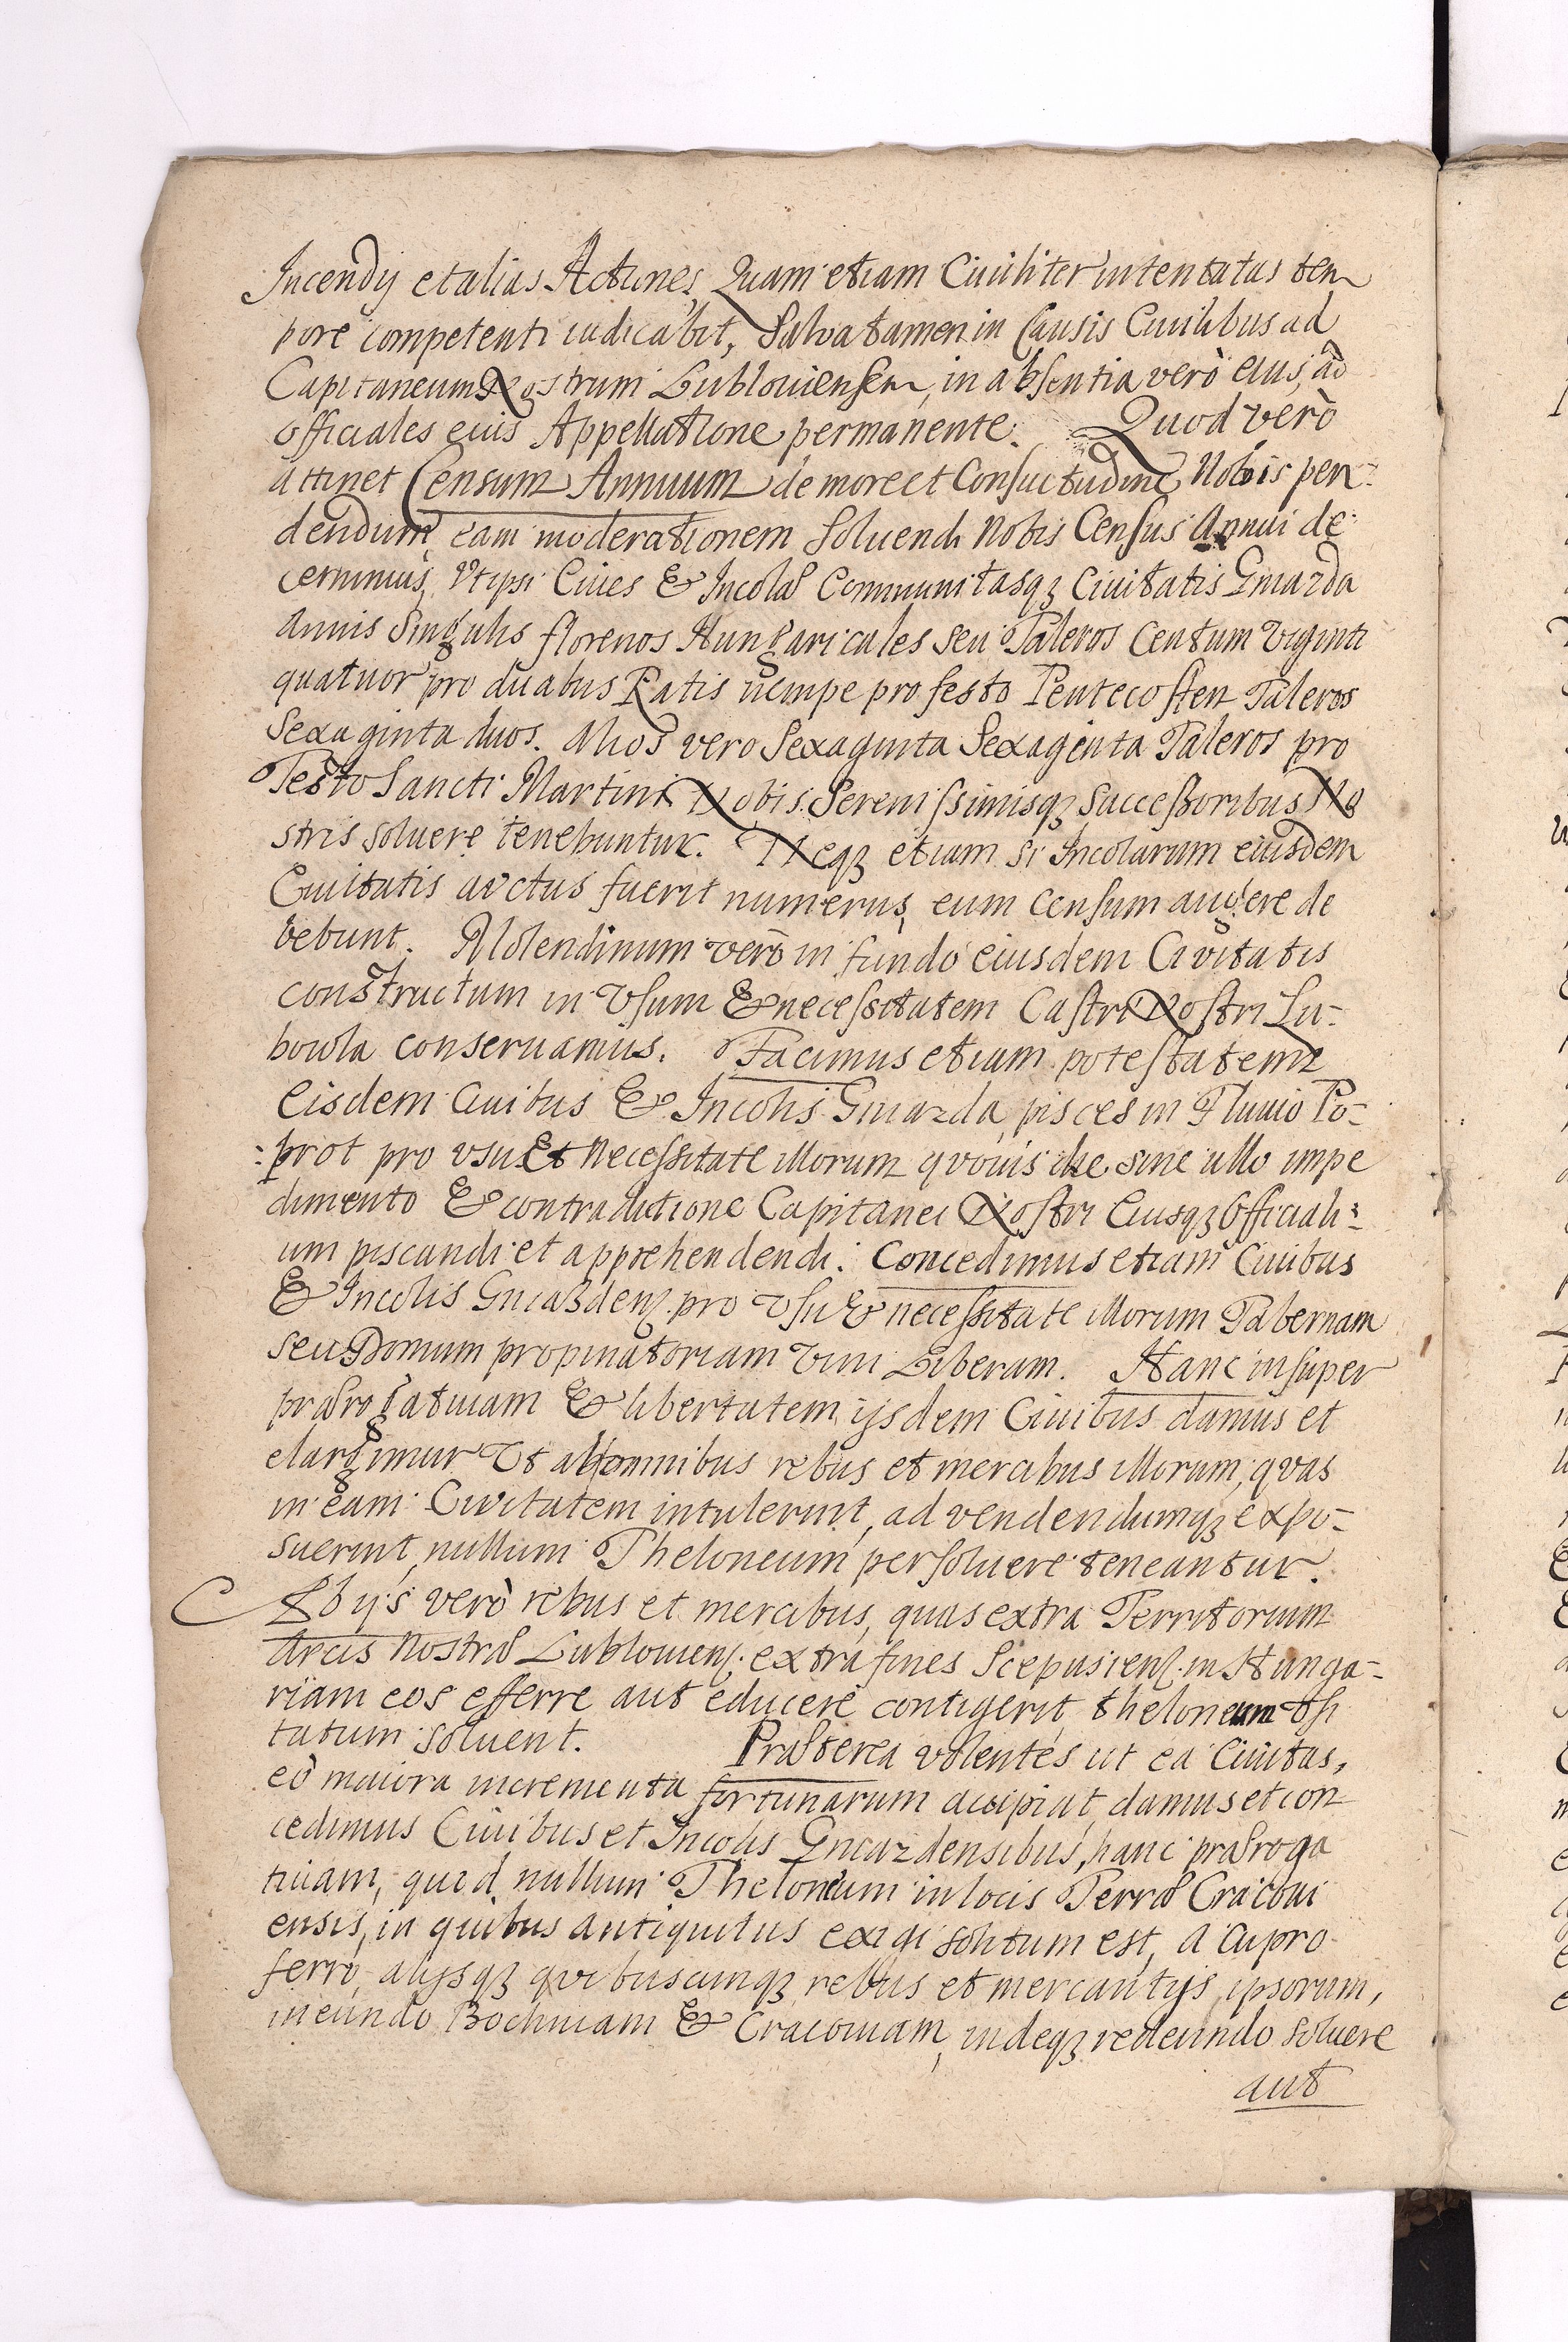 Incendij et alias Actiones, Quam etiam Ciuiliter intentatas tem
pore competenti iudicabit, Salva tamen in Causis Ciuilibus ad
Capitaneum Nostrum Lublouiensem, in absentia verò eius, ad
officiales eius Appellatione permanente. Quod verò
attinet Censum Annuum de more et Consuetudine Nobis pen:
dendum, eam moderationem Soluendi Nobis Census Annui de:
cernimus, Vt ipsi Ciues & Incolæ Communitasqz Ciuitatis Gniazda
Annis Singulis florenos Hungaricales seu Taleros Centum viginti
quatuor pro duabus Ratis nempe pro festo Pentecosten Taleros
Sexaginta duos. Alios vero Sexaginta Sexaginta Taleros pro
Festo Sancti Martini Nobis Serenissimisqz Successoribus No
stris soluere tenebuntur. Neqz etiam si Incolarum eiusdem
Ciuitatis avctus fuerit numerus, eum Censum augere de
bebunt. Molendinum verò in fundo eiusdem Civitatis
constructum in Vsum & necessitatem Castri Nostri Lu-
bowla conseruamus. Facimus etiam potestatem
Eisdem Ciuibus & Incolis Gniazda, pisces in Fluuio Po-
:prot pro vsu Et Necessitate illorum qvouis die sine ullo impe
dimento & contradictione Capitanei Nostri Eiusqz Officiali:
um piscandi et apprehendendi. Concedimus etiam Ciuibus
& Incolis Gniazdens. pro Vsu & necessitate illorum Tabernam
seu Domum propinatoriam Vini Liberam. Hanc insuper
prærogatiuam & libertatem ijsdem Ciuibus damus et
elargimur Vt ab omnibus rebus et mercibus illorum, qvas
in eam Civitatem intulerint, ad vendendumqz expo-
suerint, nullum Theloneum persoluere teneantur.
Ab ijs verò rebus et mercibus, quas extra Territorium
Arcis Nostræ Lublouiens. extra fines Scepusiens. in Hunga-
riam eos efferre aut educere contigerit, theloneum Vsi
tatum soluent. Præterea volentes ut ea Ciuitas,
eò maiora incrementa fortunarum accipiat, damus et con
cedimus Ciuibus et Incolis Gniazdensibus, hanc præroga
tiuam, quod nullum Theloneum in locis Terræ Cracoui
ensis, in quibus antiquitus exigi solitum est, a cupro
ferro, alijsqz qvibuscunqz rebus et mercantijs ipsorum,
in eundo Bochniam & Cracouiam, indeqz redeundo soluere
aut